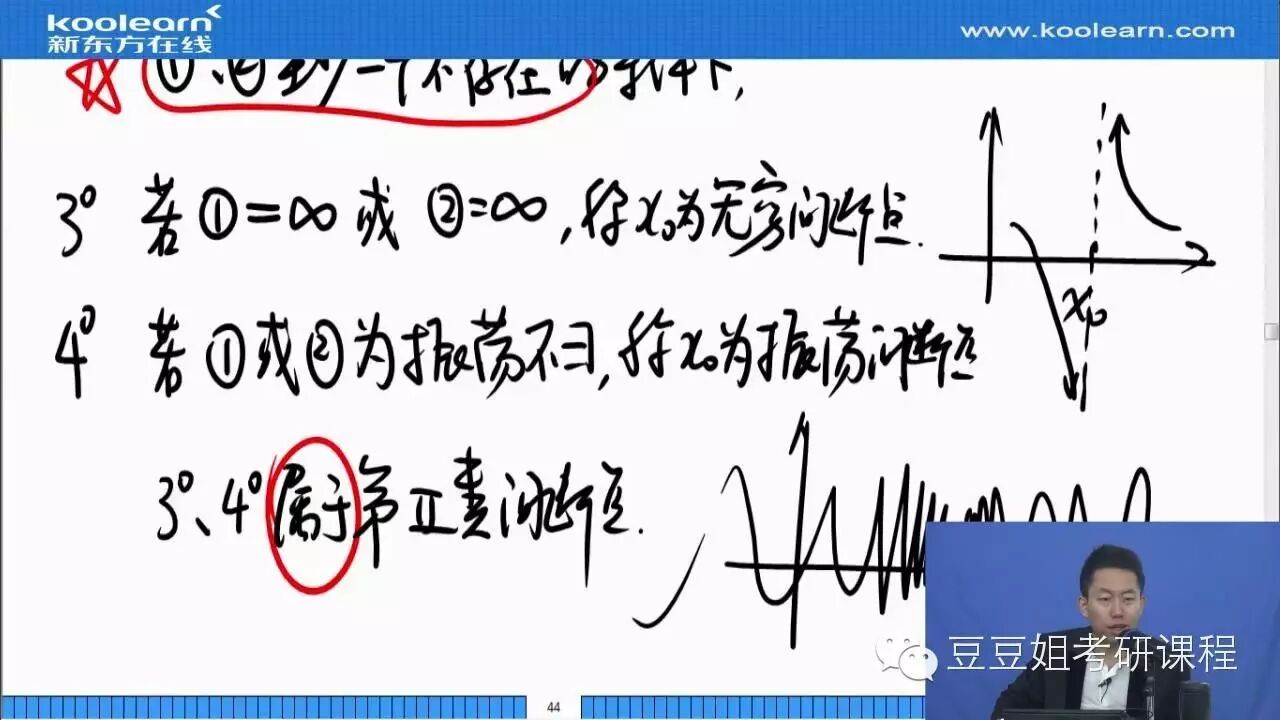 koolearn
新东方在线
www.koolearn.com
①、②至少一个不存在的条件下,
3° 若①=∞或 ②=∞,称x₀为无穷间断点.
x₀
4° 若①或②为振荡不∃,称x₀为振荡间断点
3°、4°属于第II类间断点.
豆豆姐考研课程
44